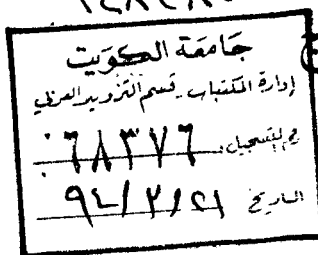 جامعة الكويت
إدارة المكتبات - قسم التزويد العربي
رقم التسجيل: ٠٦٨٣٧٦
التاريخ ٩٤/٢/٢١